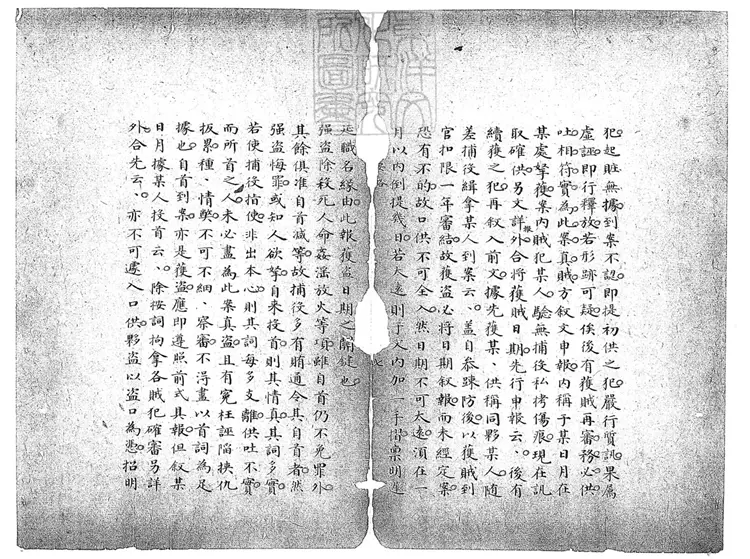 犯起賍無據到案不認即提初供之犯嚴行質訊果属
虛誣即行釋放若形跡可疑俟後有獲賊再審務必供
吐相符實為此案真賊方叙文申報內稱于某日月在
某處拏獲案內賊犯某人驗無捕役私拷傷痕現在訊
取確供另文詳報外合將獲賊日期先行申報云後有
續獲之犯再叙入前文據先獲某供稱同夥某人隨
差捕役緝拿某人到案云蓋自叅踈防後以獲賊到
官扣限一年審結故獲盜必將日期叙報而未經定案
恐有不的故口供不可全入然日期不可太遠須在一
月以內倒提幾日若太遠則于文內加一手摺票明
職名緣由此報獲盜日期之關鍵也
强盜除殺死人命姦滛放火等項雖自首仍不免罪外
其餘俱准自首减等故捕役多有賄通令其自首者然
强盜悔罪或知人欲拏自来投首則其情真其詞多實
若使捕役指使非出本心則其詞每多支離供吐不實
而所首之人未必盡為此案真盜且有寃枉誣陷挾仇
扳累種種情獘不可不細察審不得盡以首詞為足
據也自首到案亦是獲盜應即遵照前式具報但叙某
日月據某人投首云除按詞拘拿各賊犯確審另詳
外合先云亦不可遽入口供夥盜以盜口為憑招明